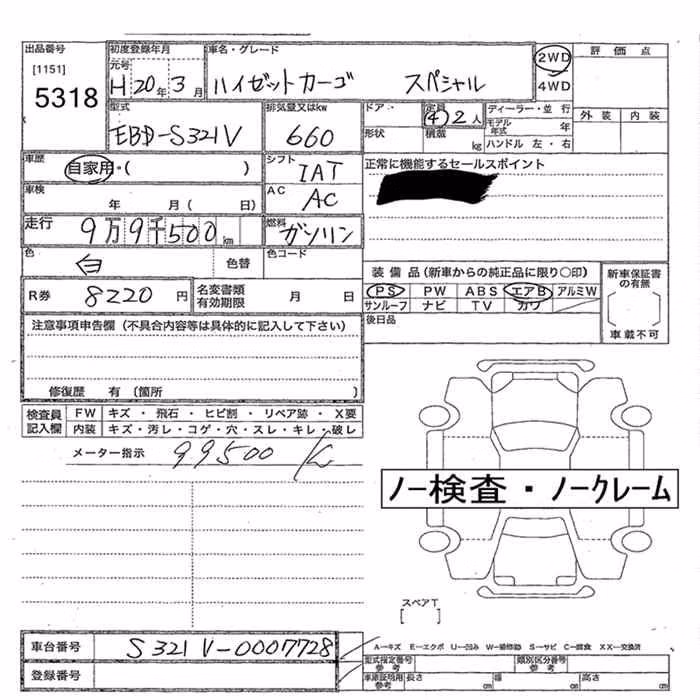 出品番号 初度登録年月 車名・グレード 2WD 評価点
[1151] 元号
5318 H20年3月 ハイゼットカーゴ スペシャル 4WD
型式 排気量又はkw ドア 定員 ④2人 ディーラー・並行 外装 内装
EBD-S321V 660 形状 積載 kg モデル年式 年
ハンドル 左・右
車歴 自家用・( ) シフト IAT 正常に機能するセールスポイント
車検 年 月( 日) AC AC
走行 9万9千500km 燃料 ガソリン
色 白 色替 色コード
装備品(新車からの純正品に限り○印) 新車保証書の有無
R券 8220円 名変書類有効期限 月 日 PS PW ABS エアB アルミW
サンルーフ ナビ TV カワ
注意事項申告欄(不具合内容等は具体的に記入して下さい) 後日品 車載不可
修復歴 有(箇所 )
検査員記入欄 FW キズ・飛石・ヒビ割・リペア跡・X要
内装 キズ・汚レ・コゲ・穴・スレ・キレ・破レ
メーター指示 99500 K
ノー検査・ノークレーム
スペアT
[ ]
車台番号 S321V-0007728 A-キズ E-エクボ U-凹み W-補修跡 S-サビ C-腐食 XX-交換済
登録番号 型式指定番号 参考 類別区分番号 参考
車庫証明用参考 長さ cm 幅 cm 高さ cm